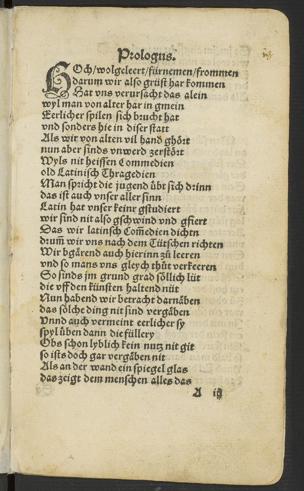 Prologus.
HOch/wolgeleert/fürnemen/frommen
darum wir also grüst har kommen
Hat vns verursacht das alein
wyl man von alter har in gmein
Eerlicher spilen sich brucht hat
vnd sonders hie in diser statt
Als wir von alten vil hand ghört
nun aber sinds vnwerd zerstört
Wyls nit heissen Commedien
old Latinisch Thragedien
Man spricht die jugend übt sich drinn
das ist auch vnser aller sinn
Latin hat vnser keinr gstudiert
wir sind nit also gschwind vnd gfiert
Das wir latinsch Comedien dichtn
drum̄ wir vns nach dem Tütschen richten
Wir bgärend auch hierinn zů leeren
vnd so mans vns gleych thůt verkeeren
So sinds jm grund grad söllich lüt
die vff den künsten haltend nüt
Nun habend wir betracht darnäben
das sölche ding nit sind vergäben
Vnnd auch vermeint eerlicher sy
spyl üben dann die füllery
Obs schon lyblich kein nutz nit git
so ists doch gar vergäben nit
Als an der wand ein spiegel glas
das zeigt dem menschen alles das
A ij